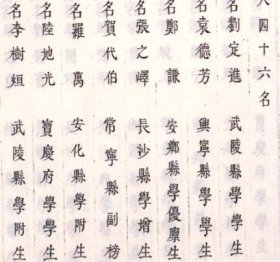 八四十六名
名劉定進　武陵縣學學生
名袁德芳　興寧縣學學生
名鄭謙　安鄉縣學優廩生
名張之嶧　長沙縣學增生
名賀代伯　常寧縣副榜
名羅萬　安化縣學附生
名陸地光　寶慶府學學生
名李樹烜　武陵縣學附生